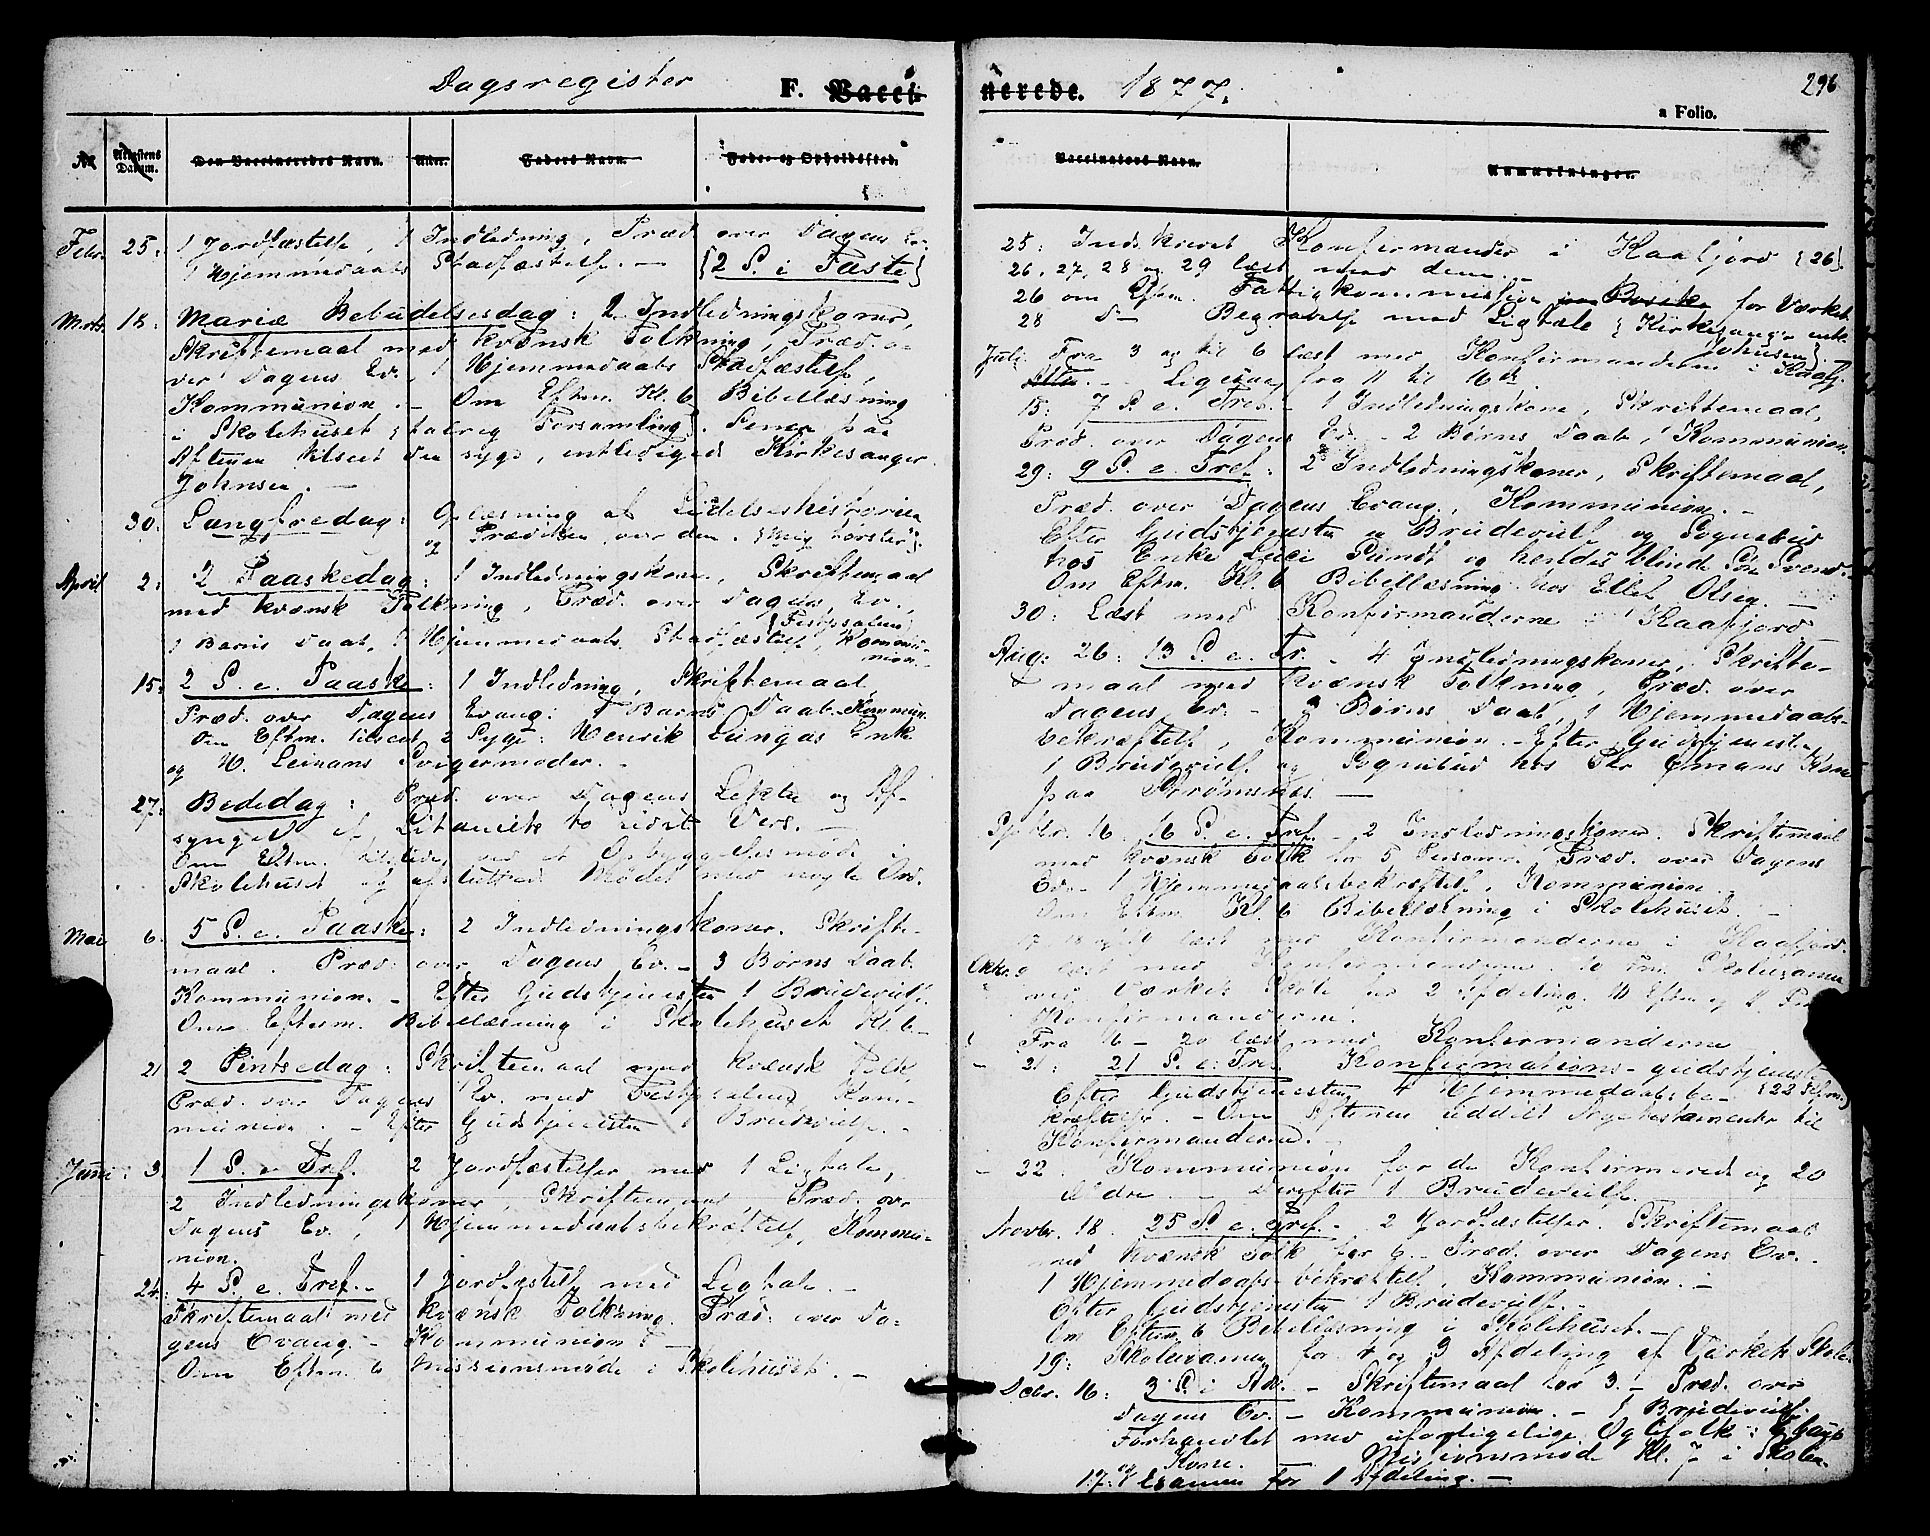 Dagsregister F. Vacci-
nerede. 1877.
296
a Folio.
No Attestens Datum. Den Vaccineredes Navn. Alder. Faders Navn. Føde- og Opholdssted.
Vaccinators Navn. Anmærkninger.
Febr. 25: 1 Jordfæstelse, 1 Indledning, Præd. over Dagens Ev.
1 Hjemmedaabs Stadfæstelse. — {2 S. i Faste}
Marts 18: Mariæ Bebudelsesdag: 2 Indledningskoner,
Skriftemaal med kvænsk Tolkning, Præd. o-
ver Dagens Ev., 1 Hjemmedaabs Stadfæstelse,
Kommunion. — Om Eftm. Kl. 6 Bibellæsning
i Skolehuset {talrig Forsamling}. Senere paa
Aftenen tilseet den syge, entledigede Kirkesanger
Johnsen. —
30. Langfredag: Oplæsning af Lidelseshistorien
og Prædiken over den.
April 2: 2 Paaskedag: 1 Indledningskone, Skriftemaal
med kvænsk Tolkning, Præd. over Dagens Ev.,
{Festsalen}
1 Barns Daab, 1 Hjemmedaabs Stadfæstelse, Kommu-
nion. —
15: 2 S. e. Paaske: 1 Indledning, Skriftemaal,
Præd. over Dagens Evang: 1 Barns Daab. Kommun.
Om Eftm. tilseet 2 Syge: Henrik Lungas Enke
og H. Leinans Svigermoder. —
27: Bededag: Præd. over Dagens Lektie og Af-
synget af Litaniets to sidste Vers. —
Om Eftm. tilstede ved et Opbyggelsesmøde i
Skolehuset og afsluttede Mødet med nogle Ord.
Mai 6. 5 S. e. Paaske: 2 Indledningskoner. Skrifte-
maal. Præd. over Dagens Ev. — 3 Børns Daab.
Kommunion. — Efter Gudstjenesten 1 Brudevielse.
Om Efterm. Bibellæsning i Skolehuset Kl. 6 —
21 2 Pintsedag: Skriftemaal med kvænsk Tolk,
Præd. over Dagens Ev. med Festsalen, Kom-
munion. — Efter Gudstjenesten 1 Brudevielse. —
Juni: 3. 1 S. e. Tref. 2 Jordfæstelser med 1 Ligtale,
2 Indledningskoner, Skriftemaal, Præd. ov.
Dagens Ev., 1 Hjemmedaabsbekræftelse, Kommu-
nion.
24: 4 S. e. Tref. — 1 Jordfæstelse med Ligtale. —
Skriftemaal med kvænsk Tolkning. Præd. over Da-
gens Evang. — Kommunion. —
Om Eftm. 6 Missionsmøde i Skolehuset. —
25: Indskrevet Konfirmander i Kaafjord {26}.
26, 27, 28 og 29 læst med dem. —
26 om Eftm. Fattigkommission for Værket
28 D— Begravelse med Ligtale {Kirkesanger
Johnsen}. —
Juli Fra 3 og til 6 læst med Konfirmanderne i Kaafj.
Ligesaa fra 11 til 16de
15: 7 S. e. Tref. — 1 Indledningskone, Skriftemaal,
Præd. over Dagens Ev. — 2 Børns Daab, Kommunion.
29: 9 S. e. Tref.: 2 Indledningskoner, Skriftemaal,
Præd. over Dagens Evang., Kommunion. —
Efter Gudstjenesten 2 Brudevielser og Sognebud
hos Enke Pundt og hendes blinde Søn Svend. —
Om Eftm. Kl. 6 Bibellæsning hos Ellef Olsen. —
30: Læst med Konfirmanderne i Kaafjord
Aug: 26: 13 S. e. Tr. — 4 Indledningskoner, Skrifte-
maal med kvænsk Tolkning, Præd. over
Dagens Ev. — Børns Daab, 1 Hjemmedaabs-
bekræftelse, Kommunion. — Efter Gudstjenesten
1 Brudevielse og Sognebud hos Kone
paa Strømsnes. —
Septbr. 16. 16 S. e. Tref. — 2 Indledningskoner. Skriftemaal
med kvænsk Tolk for 5 Personer, Præd. over Dagens
Ev. — 1 Hjemmedaabsbekræftelse, Kommunion. —
Om Eftm. Kl. 6 Bibellæsning i Skolehuset. —
17 læst med Konfirmanderne i Kaafjord.
Oktbr. 9 læst med Konfirmanderne. 10 Fm. Skoleexamen
ved Værkets Skole for 2 Afdeling. 10 Eftm og
Konfirmanderne.
Fra 16 — 20 læst med Konfirmanderne —
— 21: 21 S. e. Tref. Konfirmations-gudstjeneste
Efter Gudstjenesten 4 Hjemmedaabsbe-
kræftelser. — Om Aftenen uddelt Nye testamenter til
Konfirmanderne. —
— 22. Kommunion for de Konfirmerede og 20
Ældre. — Derefter 1 Brudevielse.
Novbr. 18. 25 S. e. Tref. — 2 Jordfæstelser. Skriftemaal
med kvænsk Tolk for 6. — Præd. over Dagens Ev. —
1 Hjemmedaabs-bekræftelse, Kommunion. —
Efter Gudstjenesten 1 Brudevielse. —
Om Eftm. 6 Bibellæsning i Skolehuset. —
19: Skoleexamen for 1 og 3 Afdeling af Værkets Skole.
Decbr. 16: 3 S. i Adv. — Skriftemaal for 3. — Præd. over
Dagens Ev. — Kommunion. — 1 Brudevielse.
Forhandlet med uforligelige Ægtefolk:
og Kone. Missionsmøde Kl. 7 i Skolen.
17: Examen for 1 Afdeling. —